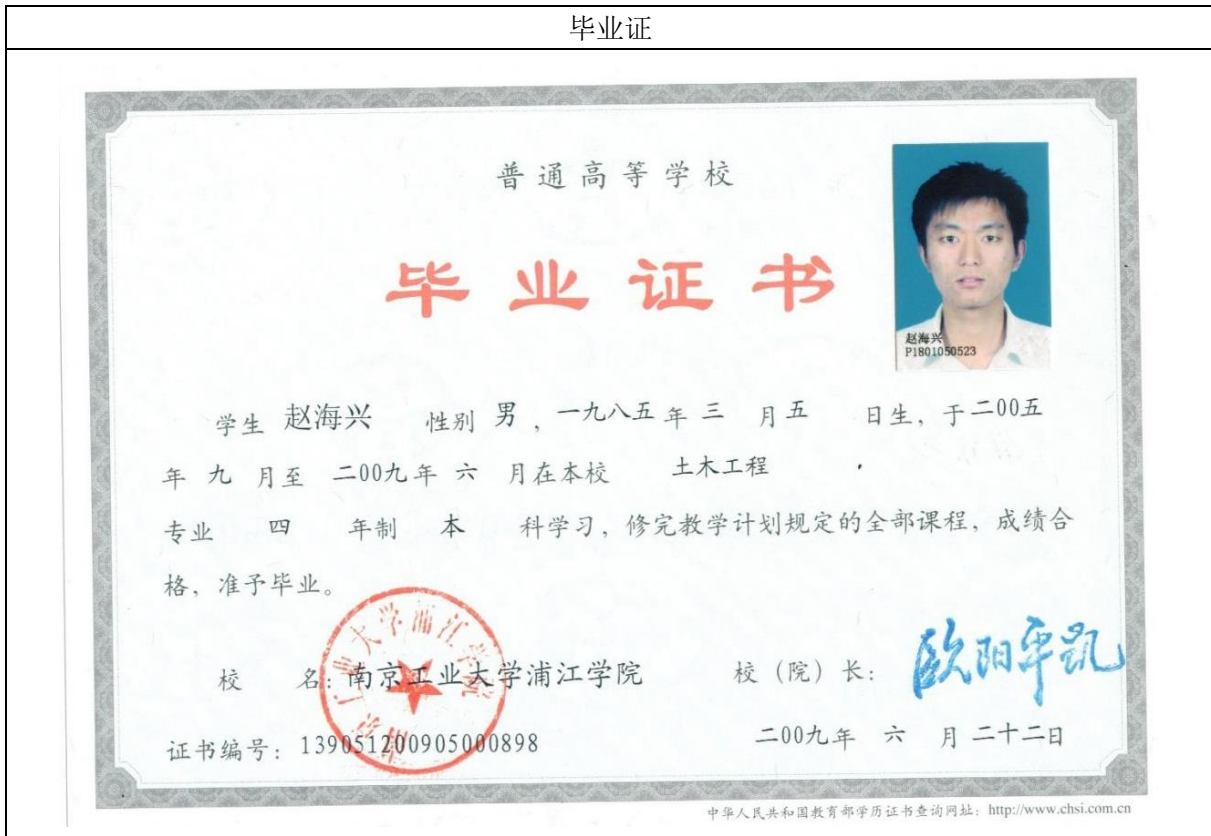 毕业证
普通高等学校
毕业证书
赵海兴
P1801050523
学生 赵海兴 性别 男，一九八五年 三 月 五 日生，于二00五
年 九 月至 二00九年 六 月在本校 土木工程
专业 四 年制 本 科学习，修完教学计划规定的全部课程，成绩合
格，准予毕业。
南京工业大学浦江学院
校 名：南京工业大学浦江学院 校（院）长：欧阳平凯
证书编号：139051200905000898 二00九年 六 月 二十二日
中华人民共和国教育部学历证书查询网址：http://www.chsi.com.cn